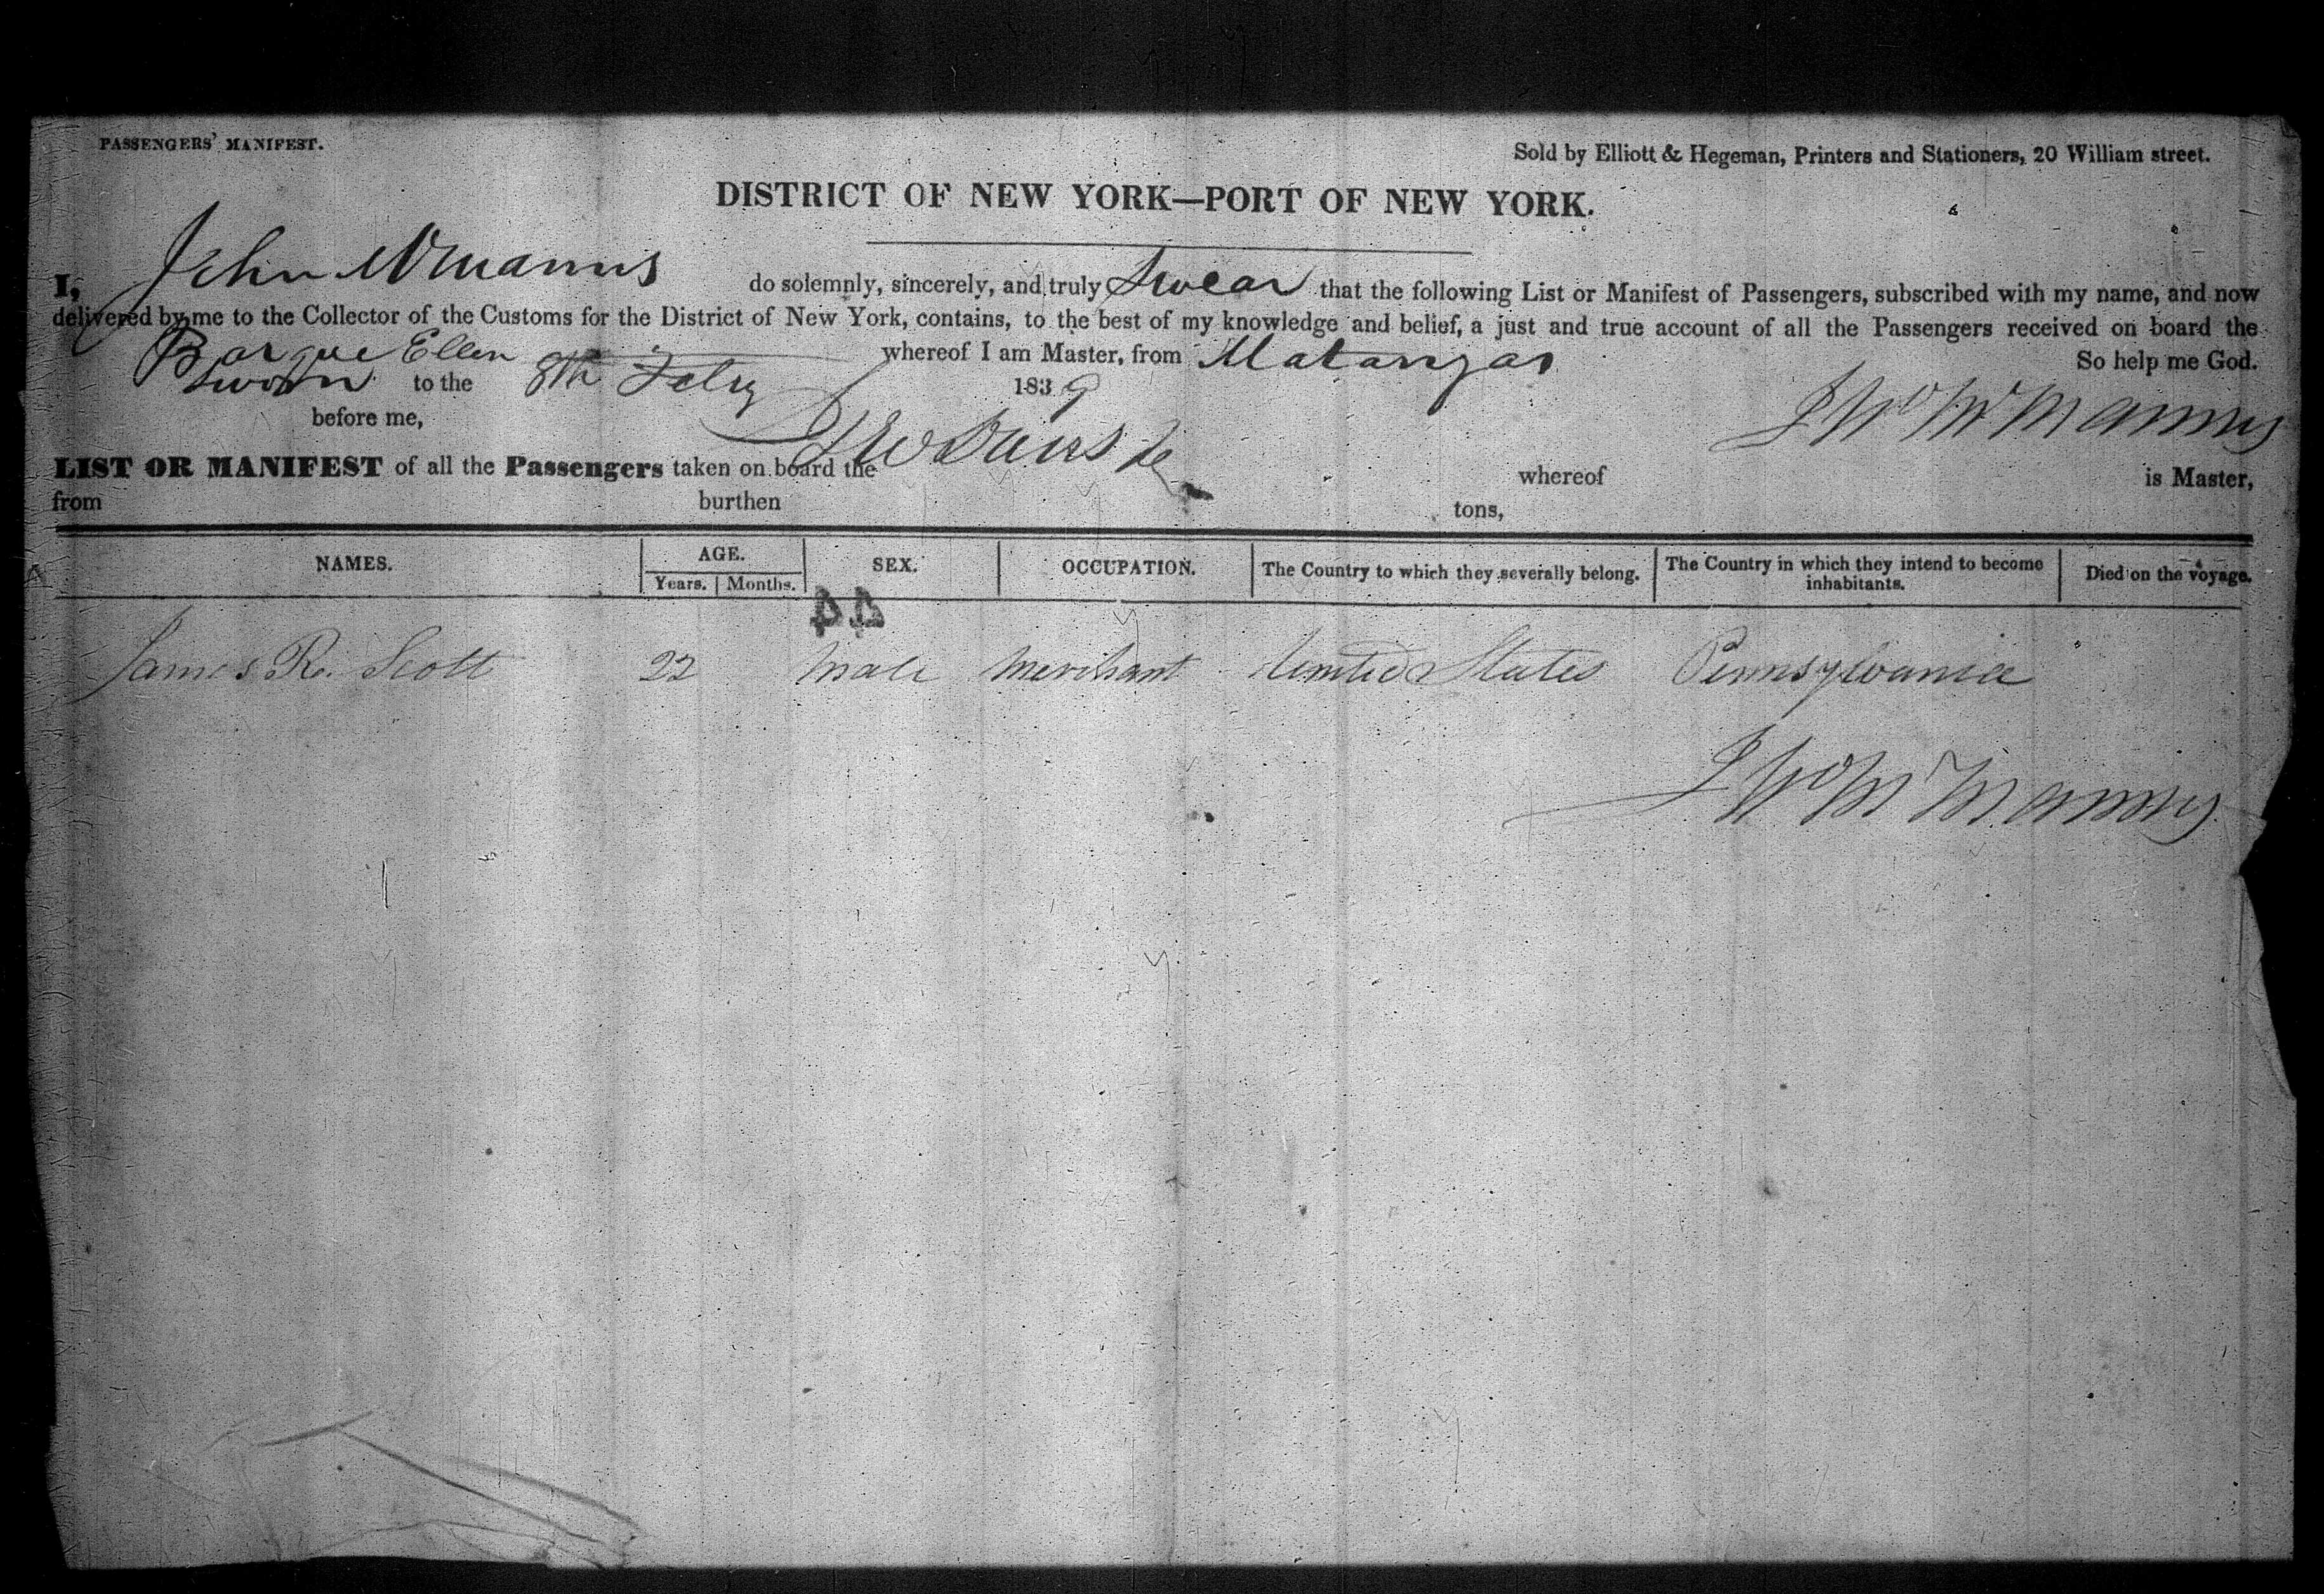 PASSENGERS' MANIFEST.
Sold by Elliott & Hegeman, Printers and Stationers, 20 William street.
DISTRICT OF NEW YORK—PORT OF NEW YORK.
I, John do solemnly, sincerely, and truly Swear that the following List or Manifest of Passengers, subscribed with my name, and now
delivered by me to the Collector of the Customs for the District of New York, contains, to the best of my knowledge and belief, a just and true account of all the Passengers received on board the
Barque Ellen whereof I am Master, from Matanzas So help me God.
Sworn to the 8th Feby 1839
before me,
LIST OR MANIFEST of all the Passengers taken on board the whereof is Master,
from burthen tons,
NAMES. AGE. Years. Months. SEX. OCCUPATION. The Country to which they severally belong. The Country in which they intend to become inhabitants. Died on the voyage.
44
James R. Scott 22 Male Merchant United States Pennsylvania